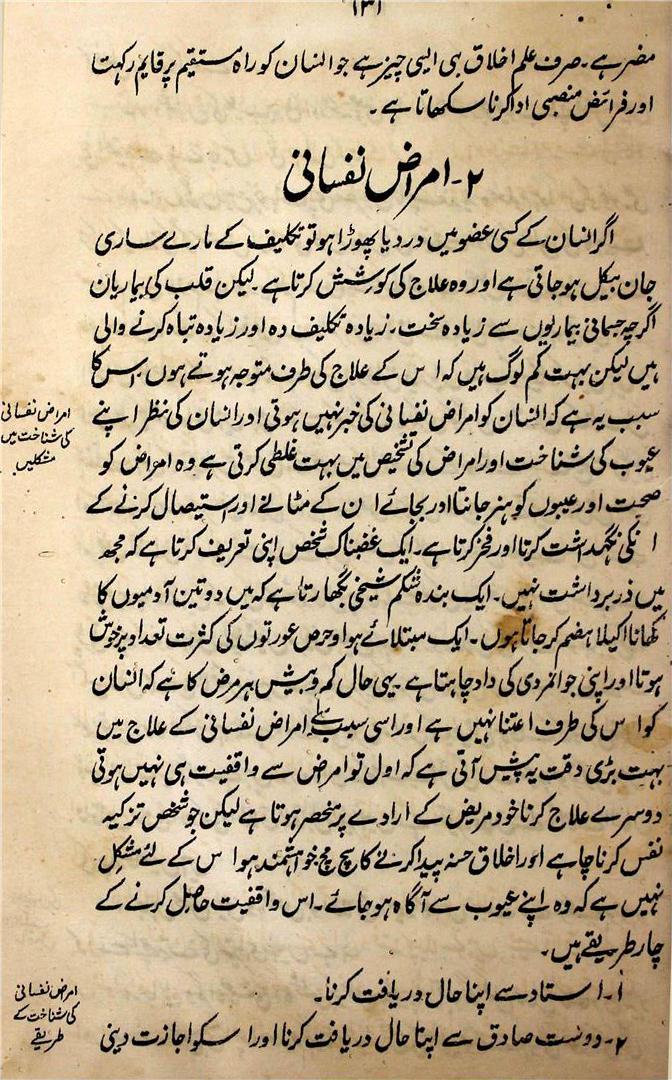 ۱۳۱
مضر ہے۔ صرف علم اخلاق ہی ایسی چیز ہے جو انسان کو راہ مستقیم پر قایم رکہتا
اور فرائض منصبی ادا کرنا سکھاتا ہے۔
۲۔ امراض نفسانی
اگر انسان کے کسی عضو میں درد یا پھوڑا ہو تو تکلیف کے مارے ساری
جان بیکل ہو جاتی ہے اور وہ علاج کی کوشش کرتا ہے۔ لیکن قلب کی بیماریاں
اگرچہ جسمانی بیماریوں سے زیادہ سخت۔ زیادہ تکلیف دہ اور زیادہ تباہ کرنے والی
ہیں لیکن بہت کم لوگ ہیں کہ اس کے علاج کی طرف متوجہ ہوتے ہوں۔ اس کا
سبب یہ ہے کہ انسان کو امراض نفسانی کی خبر نہیں ہوتی اور انسان کی نظر اپنے
عیوب کی شناخت اور امراض کی تشخیص میں بہت غلطی کرتی ہے وہ امراض کو
صحت اور عیبوں کو ہنر جانتا اور بجائے ان کے مٹانے اور استیصال کرنے کے
انکی نگہداشت کرتا اور فخر کرتا ہے۔ ایک غضبناک شخص اپنی تعریف کرتا ہے کہ مجھ
میں ذرہ برداشت نہیں۔ ایک بندہ شکم شیخی بگھارتا ہے کہ میں دو تین آدمیوں کا
کھانا اکیلا ہضم کر جاتا ہوں۔ ایک مبتلائے ہوا و حرص عورتوں کی کثرت تعداد پر خوش
ہوتا اور اپنی جوانمردی کی داد چاہتا ہے۔ یہی حال کم و بیش ہر مرض کا ہے کہ انسان
کو اس کی طرف اعتنا نہیں ہے اور اسی سبب سے امراض نفسانی کے علاج میں
بہت بڑی دقت یہ پیش آتی ہے کہ اول تو امراض سے واقفیت ہی نہیں ہوتی
دوسرے علاج کرنا خود مریض کے ارادے پر منحصر ہوتا ہے لیکن جو شخص تزکیہ
نفس کرنا چاہے اور اخلاق حسنہ پیدا کرنے کا سچ مچ خواہشمند ہو اس کے لئے مشکل
نہیں ہے کہ وہ اپنے عیوب سے آگاہ ہو جائے۔ اس واقفیت حاصل کرنے کے
چار طریقے ہیں۔
۱۔ استاد سے اپنا حال دریافت کرنا۔
۲۔ دوست صادق سے اپنا حال دریافت کرنا اور اسکو اجازت دینی
امراض نفسانی
کی شناخت میں
مشکلیں
امراض نفسانی
کی شناخت کے
طریقے